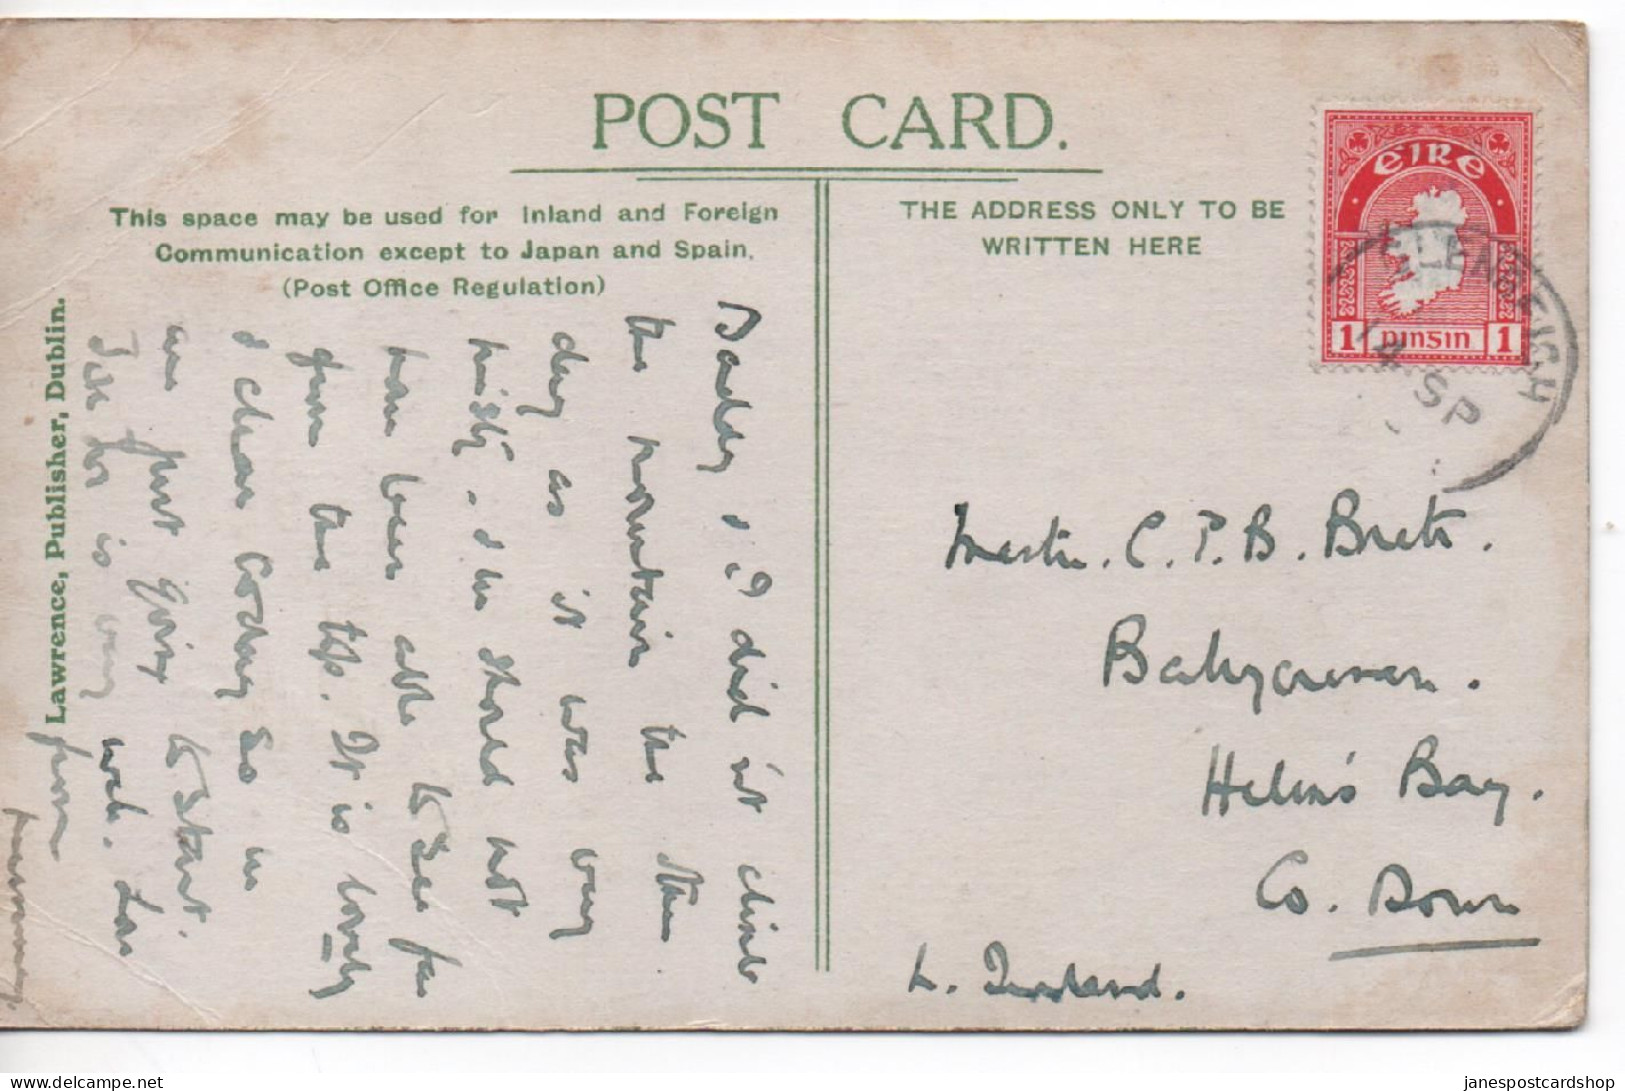 POST CARD.
This space may be used for Inland and Foreign
Communication except to Japan and Spain.
(Post Office Regulation)
THE ADDRESS ONLY TO BE
WRITTEN HERE
EIRE
1 PINSIN 1
SP
Lawrence, Publisher, Dublin.
Daddy & I didn't climb
the mountain the other
day as it was very
misty, & we should not
have been able to see far
from the top. It is lovely
& clear today so we
are just going to start.
is very well. Love
from
Mummy.
Master. C. P. B. Brett.
Helen's Bay.
Co. Down
N. Ireland.
janespostcardshop
delcampe.net